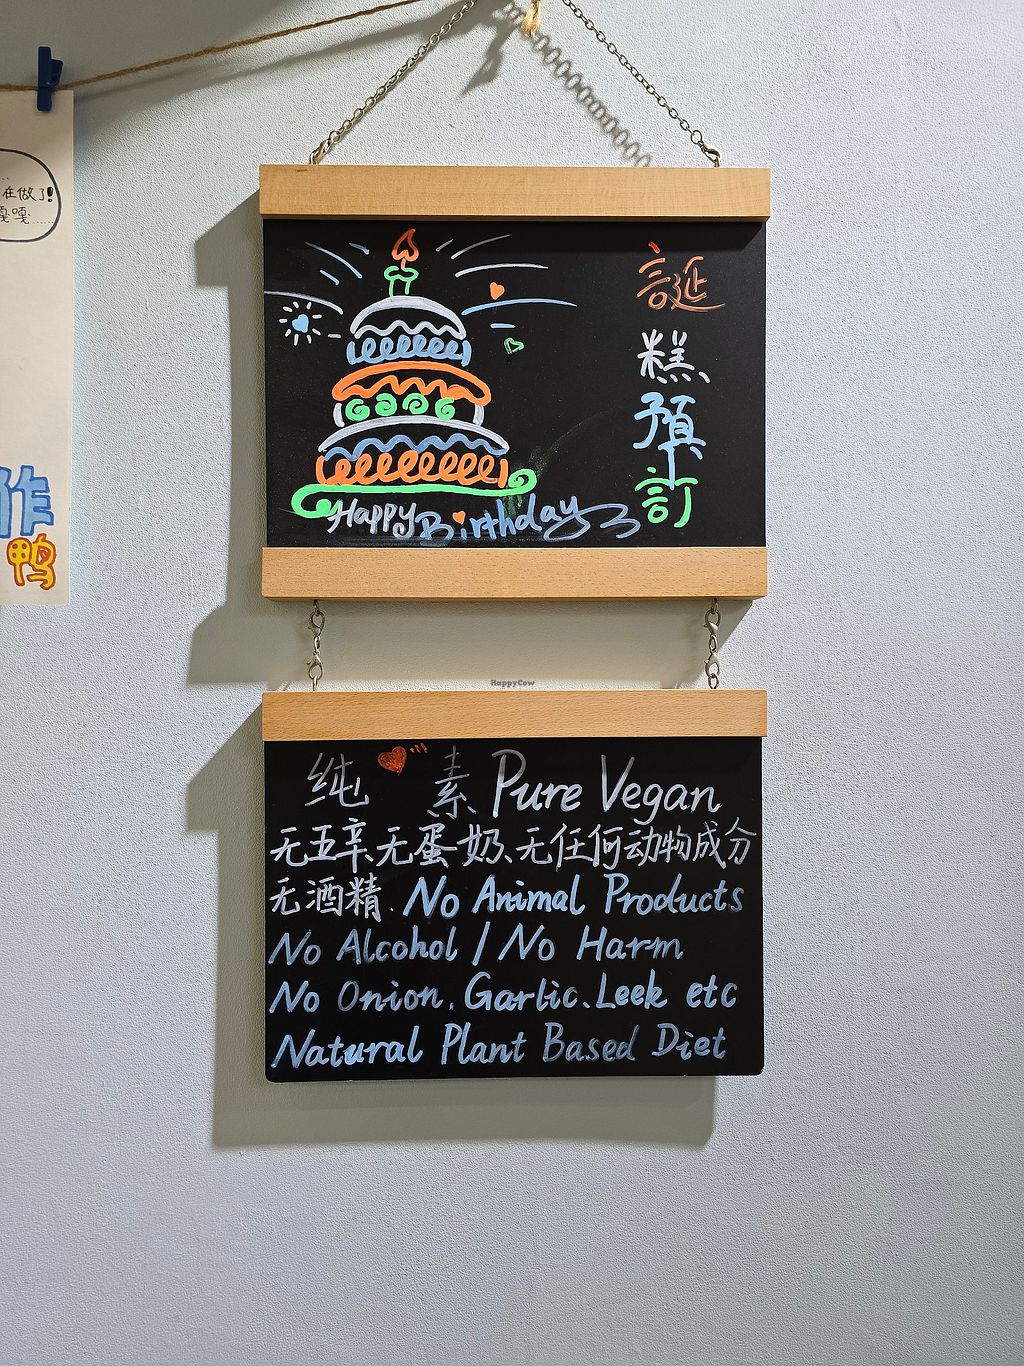 在做了!
嘎嘎......
作
鸭
誕
糕
預
訂
Happy Birthday
HappyCow
纯 素 Pure Vegan
无五辛、无蛋奶、无任何动物成分
无酒精. No Animal Products
No Alcohol / No Harm
No Onion. Garlic. Leek etc
Natural Plant Based Diet